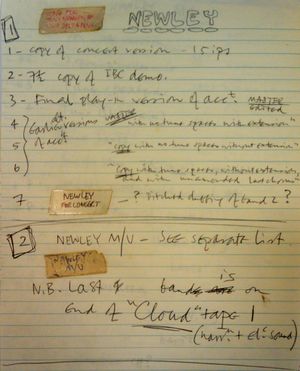 1
NEWLEY
1 - copy of concert version - 15 ips
2 - 7½ copy of IBC demo.
3 - Final play-in version of acct. MASTER
edited
4
Earlier versions
"with no tune spaces with extension"
of acct.
5
"copy with no tune spaces without extension"
6
"Copy with tune spaces, without extension,
and with unamended
7
NEWLEY
FOR CONCERT
- ? Pitched dubbing of 1 and 2 ?
2
NEWLEY M/V - SEE separate list.
NEWLEY
M/V
N.B. Last
band is on
End of "Cloud" tape 1
(narr.n + El.c sound)